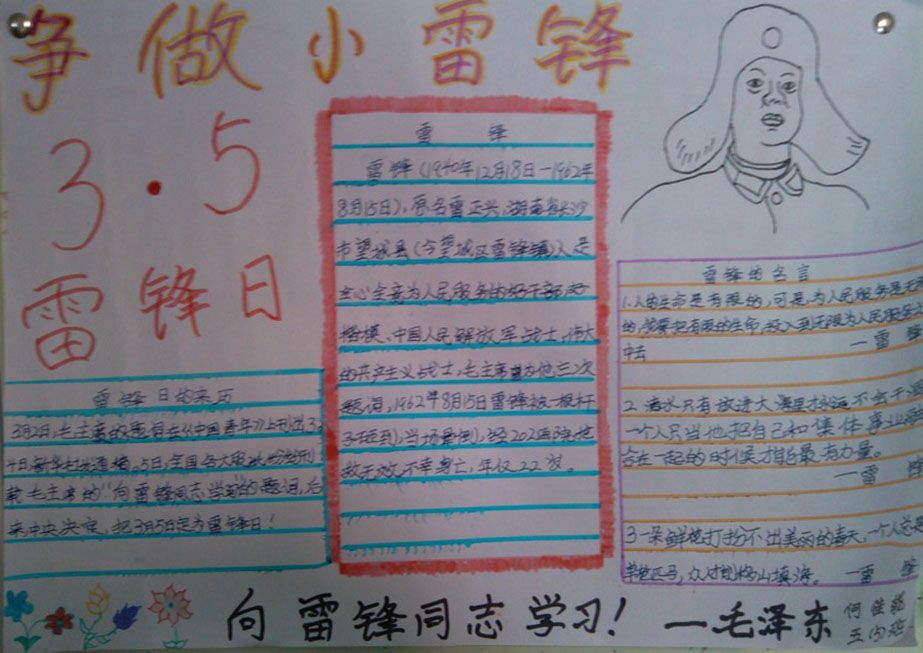 争做小雷锋
3·5
雷锋日
雷锋日的来历
3月2日,毛主席的题词在《中国青年》上刊出,3
4日新华社发通稿。5日,全国各大报
载毛主席的“向雷锋同志学习”的题词,后
来中央决定,把3月5日定为雷锋日!
雷 锋
雷锋(1940年12月18日—1962年
8月15日),原名雷正兴,湖南省长沙
市望城县(今望城区雷锋镇)人,是
全心全意为人民服务的好干部
楷模、中国人民解放军战士、伟大
的共产主义战士,毛主席曾为他三次
题词,1962年8月15日雷锋被一根杆
子砸到,当场晕倒,经202医院抢
救无效,不幸身亡,年仅22岁。
雷锋的名言
1.人的生命是有限的,可是,为人民服务是无
的,我要把有限的生命,投入到无限为人民服务
中去 —雷锋
2.滴水只有放进大海里才永远不会干
一个人只当他把自己和集体事业
合在一起的时候才能最有力量。
—雷锋
3.一朵鲜花打扮不出美丽的春天,一个人
单枪匹马,众才能移山填海。 —雷锋
向雷锋同志学习! —毛泽东
何佳
五(4)班